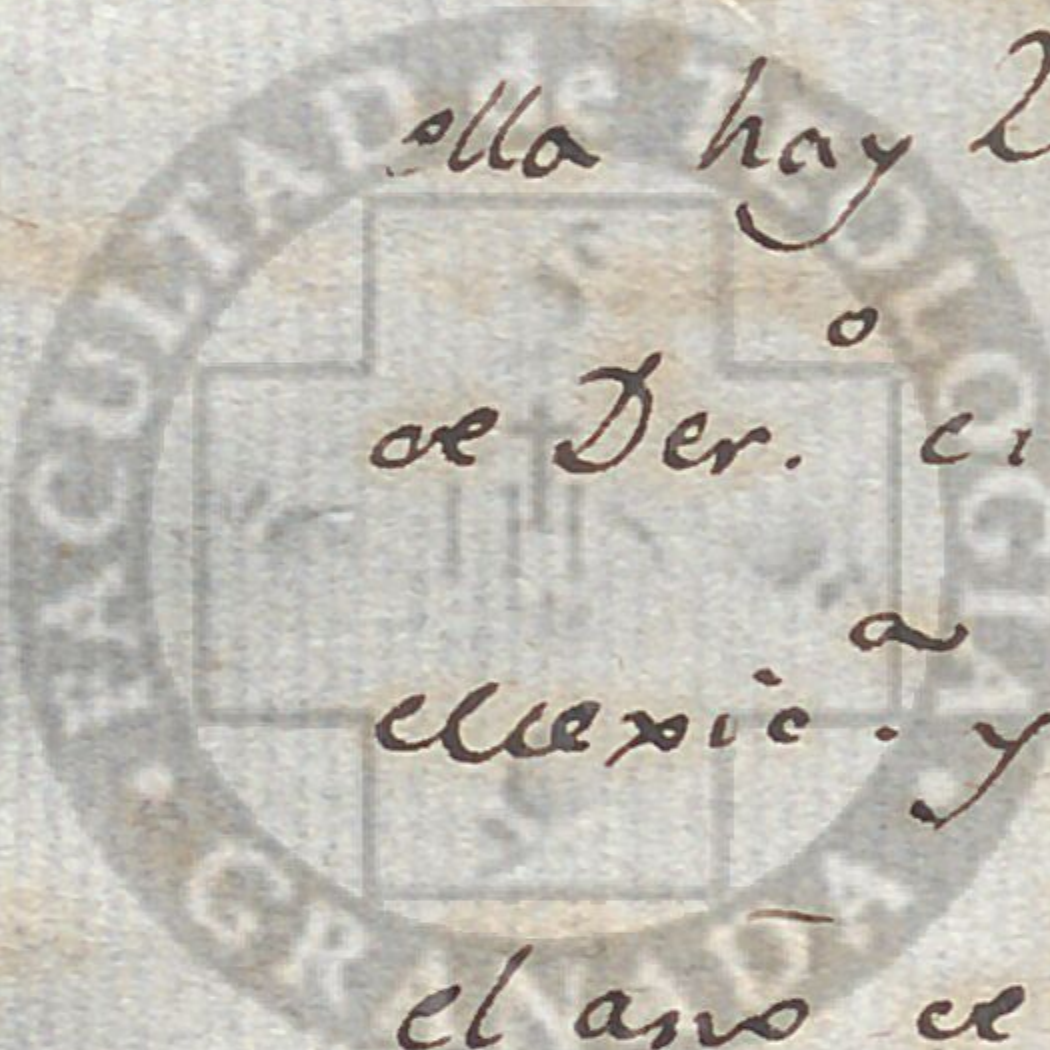 FACULTAD de TEOLOGIA
· GRANADA ·
ella hay 2
de Der.º ci
Mexic.ª y
el año de